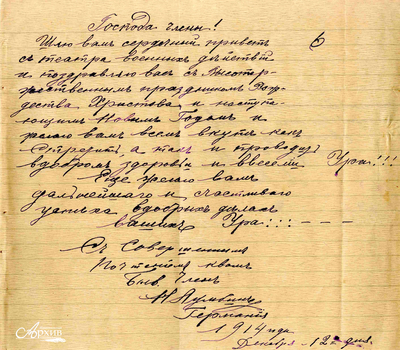 Господа члены!
Шлю вам сердечный приветъ 6
съ театра военныхъ действий
и поздравляю васъ съ Высокотор-
жественнымъ праздникомъ Рож-
дества Христова и насту-
ющимъ Новымъ Годомъ и
желаю вамъ всемъ
встретить, а такъ и проводить
здоровьи и Ура!!!
Еще желаю вамъ
дальнейшаго и счастливого
успеха вдобрыхъ делахъ
вашихъ Ура:::---
Съ Совершеннымъ
Почтениемъ квамъ
Быв. Членъ
Германия
1914 года
Декабря 12 дня.
Архив